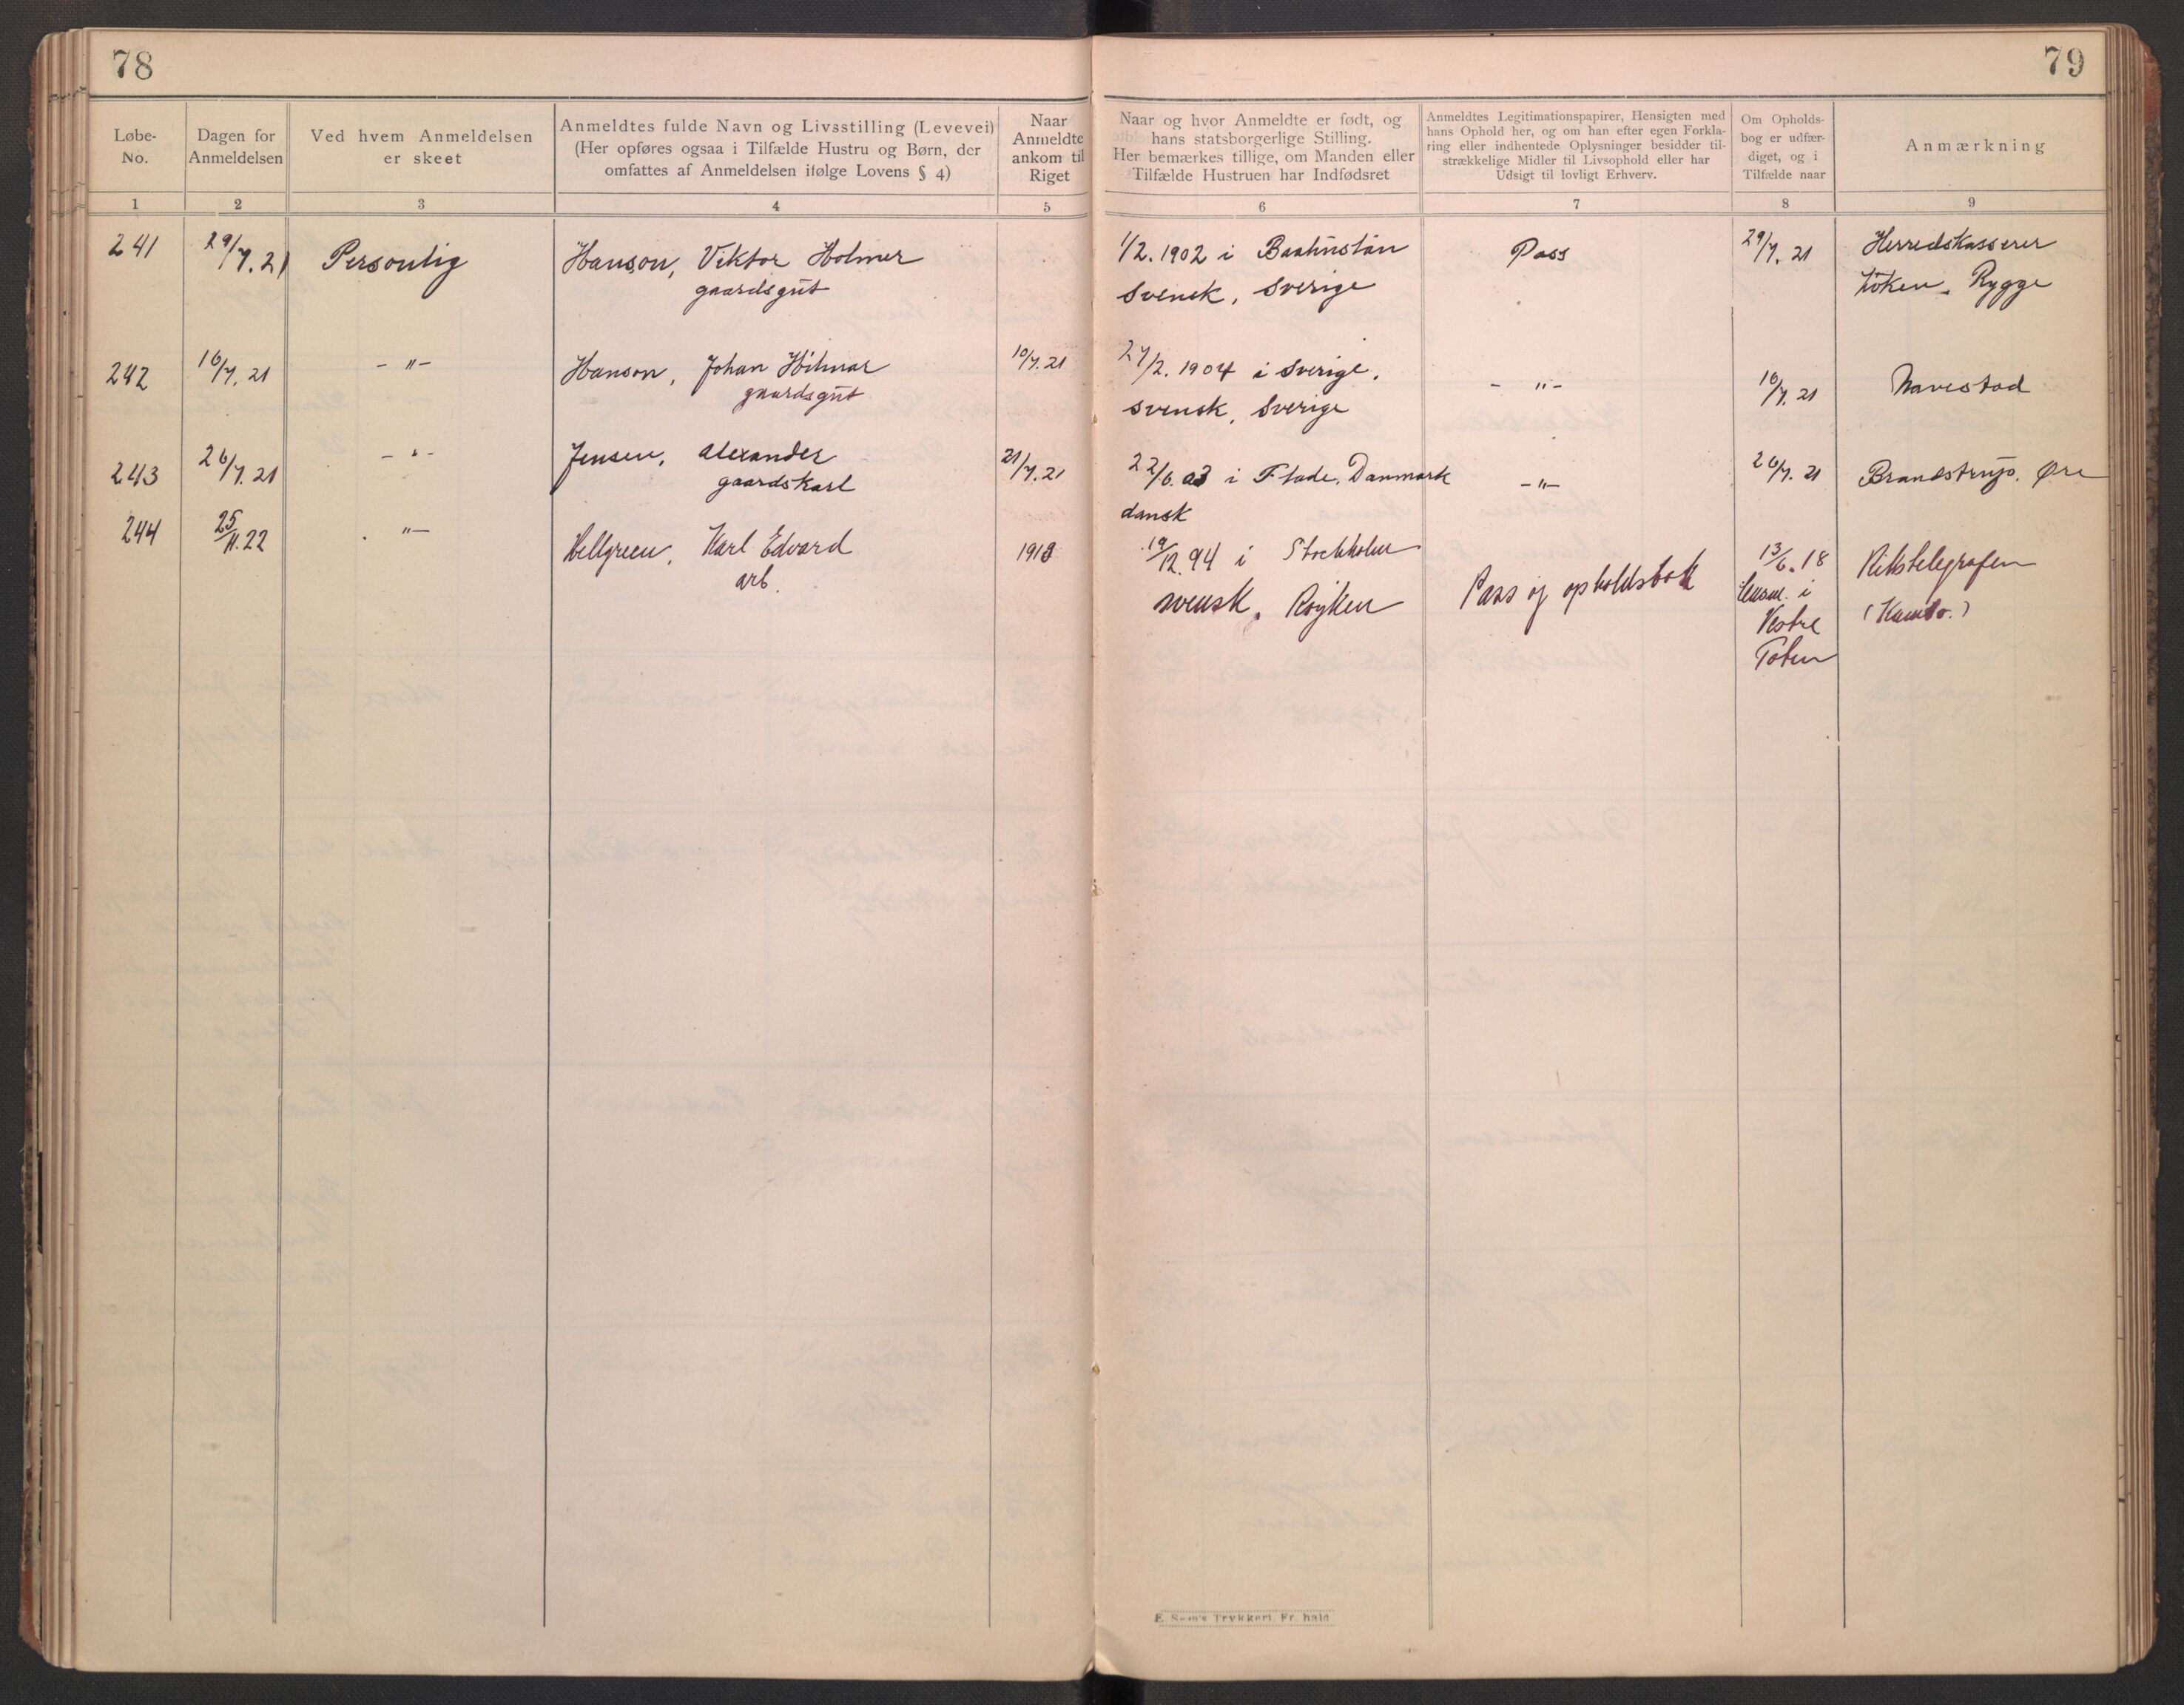 78
79
Løbe-
No.
Dagen for
Anmeldelsen
Ved hvem Anmeldelsen
er skeet
Anmeldtes fulde Navn og Livsstilling (Levevei)
(Her opføres ogsaa i Tilfælde Hustru og Børn, der
omfattes af Anmeldelsen ifølge Lovens § 4)
Naar
Anmeldte
ankom til
Riget
Naar og hvor Anmeldte er født, og
hans statsborgerlige Stilling.
Her bemærkes tillige, om Manden eller
Tilfælde Hustruen har Indfødsret
Anmeldtes Legitimationspapirer, Hensigten med
hans Ophold her, og om han efter egen Forkla-
ring eller indhentede Oplysninger besidder til-
strækkelige Midler til Livsophold eller har
Udsigt til lovligt Erhverv.
Om Opholds-
bog er udfær-
diget, og i
Tilfælde naar
Anmærkning
1 2 3 4 5 6 7 8 9
241 29/7. 21 Personlig Hanson, Viktor Holmer 1/2. 1902 i Pass 29/7. 21 Herredskasserer
gaardsgut svensk, Sverige Rygge
242 16/7. 21 - " - Hanson, Johan Hilmar 10/7. 21 27/2. 1904 i Sverige. - " - 16/7. 21 Navestad
gaardsgut svensk, Sverige
243 26/7. 21 - " - Jensen, Alexander 21/7. 21 22/6. 03 i Flade, Danmark - " - 26/7. 21 Brandstrup. Øre
gaardskarl dansk
244 25/11. 22 " - Hellgreen, Karl Edvard 1913 19/12. 94 i Stockholm Pass og opholdsbok 13/6. 18 Rikstelegrafen
arb. svensk. Røyken lensm. i (Kambo.)
Vestre
Toten
E. Sem's Trykkeri, Fr. hald